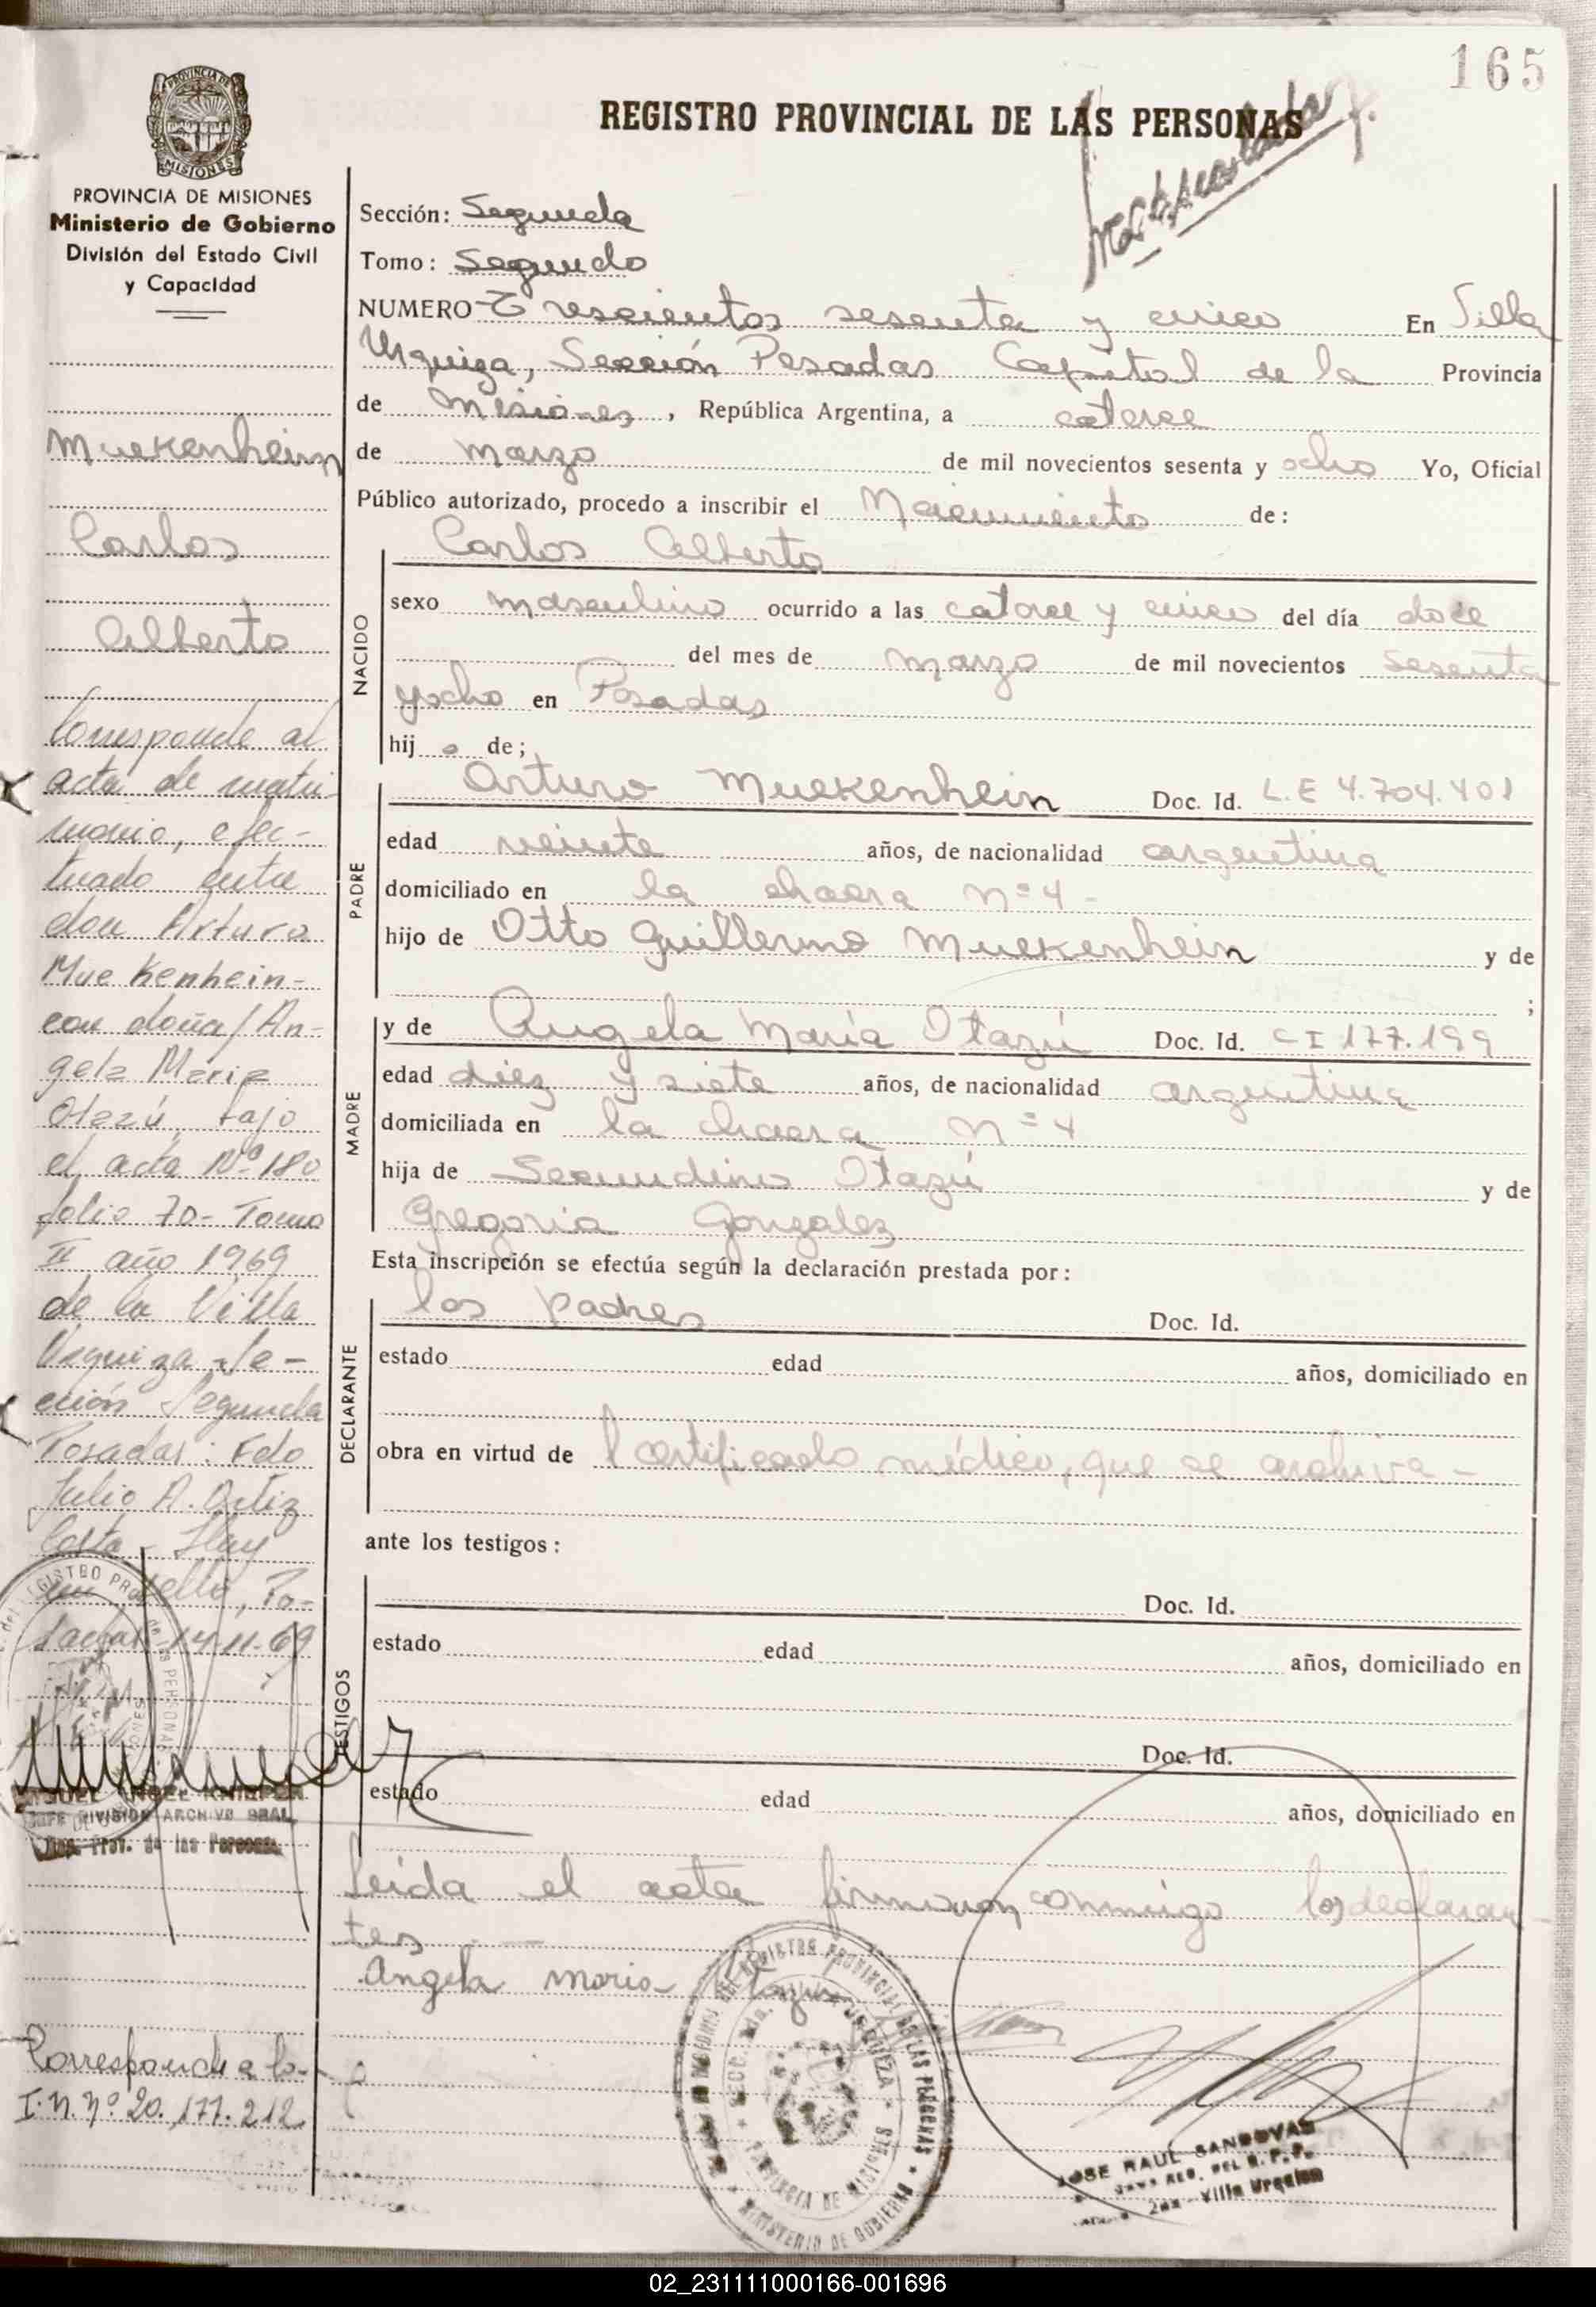 165
REGISTRO PROVINCIAL DE LAS PERSONAS
PROVINCIA DE MISIONES
MISIONES
PROVINCIA DE MISIONES
Ministerio de Gobierno
División del Estado Civil
y Capacidad
Muekenheim
Carlos
Alberto
Corresponde al
acta de matri
monio, efec-
tuado entre
don Arturo
Muekenhein-
con doña/An-
gela Maria
Otazú, bajo
el acta Nº 180
folio 70- Tomo
II año 1969
de la Villa
Urquiza Se-
cción Segunda
Posadas: Fdo
Julio A. Ortiz
Costa - Hay
un sello, Po-
sadas-14-11-69
MIGUEL ANGEL
JEFE DIVISION ARCHIVO GRAL.
Reg. Prov. de las Personas
Corresponde a la
I.N. nº 20.177.212
Sección: Segunda
Tomo: Segundo
NUMERO Trescientos sesenta y cinco En Villa
Urquiza, Sección Posadas Capital de la Provincia
de Misiones, República Argentina, a catorce
de marzo de mil novecientos sesenta y ocho Yo, Oficial
Público autorizado, procedo a inscribir el Nacimiento de:
NACIDO
Carlos Alberto
sexo masculino ocurrido a las catorce y cinco del día doce
del mes de marzo de mil novecientos sesenta
y ocho en Posadas
hij o de;
PADRE
Arturo Muekenhein Doc. Id. L.E 4.704.401
edad veinte años, de nacionalidad argentina
domiciliado en la chacra nº 4 -
hijo de Otto Guillermo Muekenhein y de
;
MADRE
y de Angela María Otazú Doc. Id. C I 177.199
edad diez y siete años, de nacionalidad argentina
domiciliada en la chacra nº 4
hija de Secundino Otazú y de
Gregoria Gonzalez
Esta inscripción se efectúa según la declaración prestada por:
DECLARANTE
los padres Doc. Id.
estado edad años, domiciliado en
obra en virtud de l certificado médico, que se archiva -
ante los testigos:
TESTIGOS
Doc. Id.
estado edad años, domiciliado en
Doc. Id.
estado edad años, domiciliado en
Leida el acta firmaron conmigo los declaran-
tes . —
Angela maria Otazu
REGISTRO PROVINCIAL DE LAS PERSONAS
MINISTERIO DE GOBIERNO
PROVINCIA DE MISIONES
JOSE RAUL SANDOVAL
2da - Villa Urquiza
02_231111000166-001696